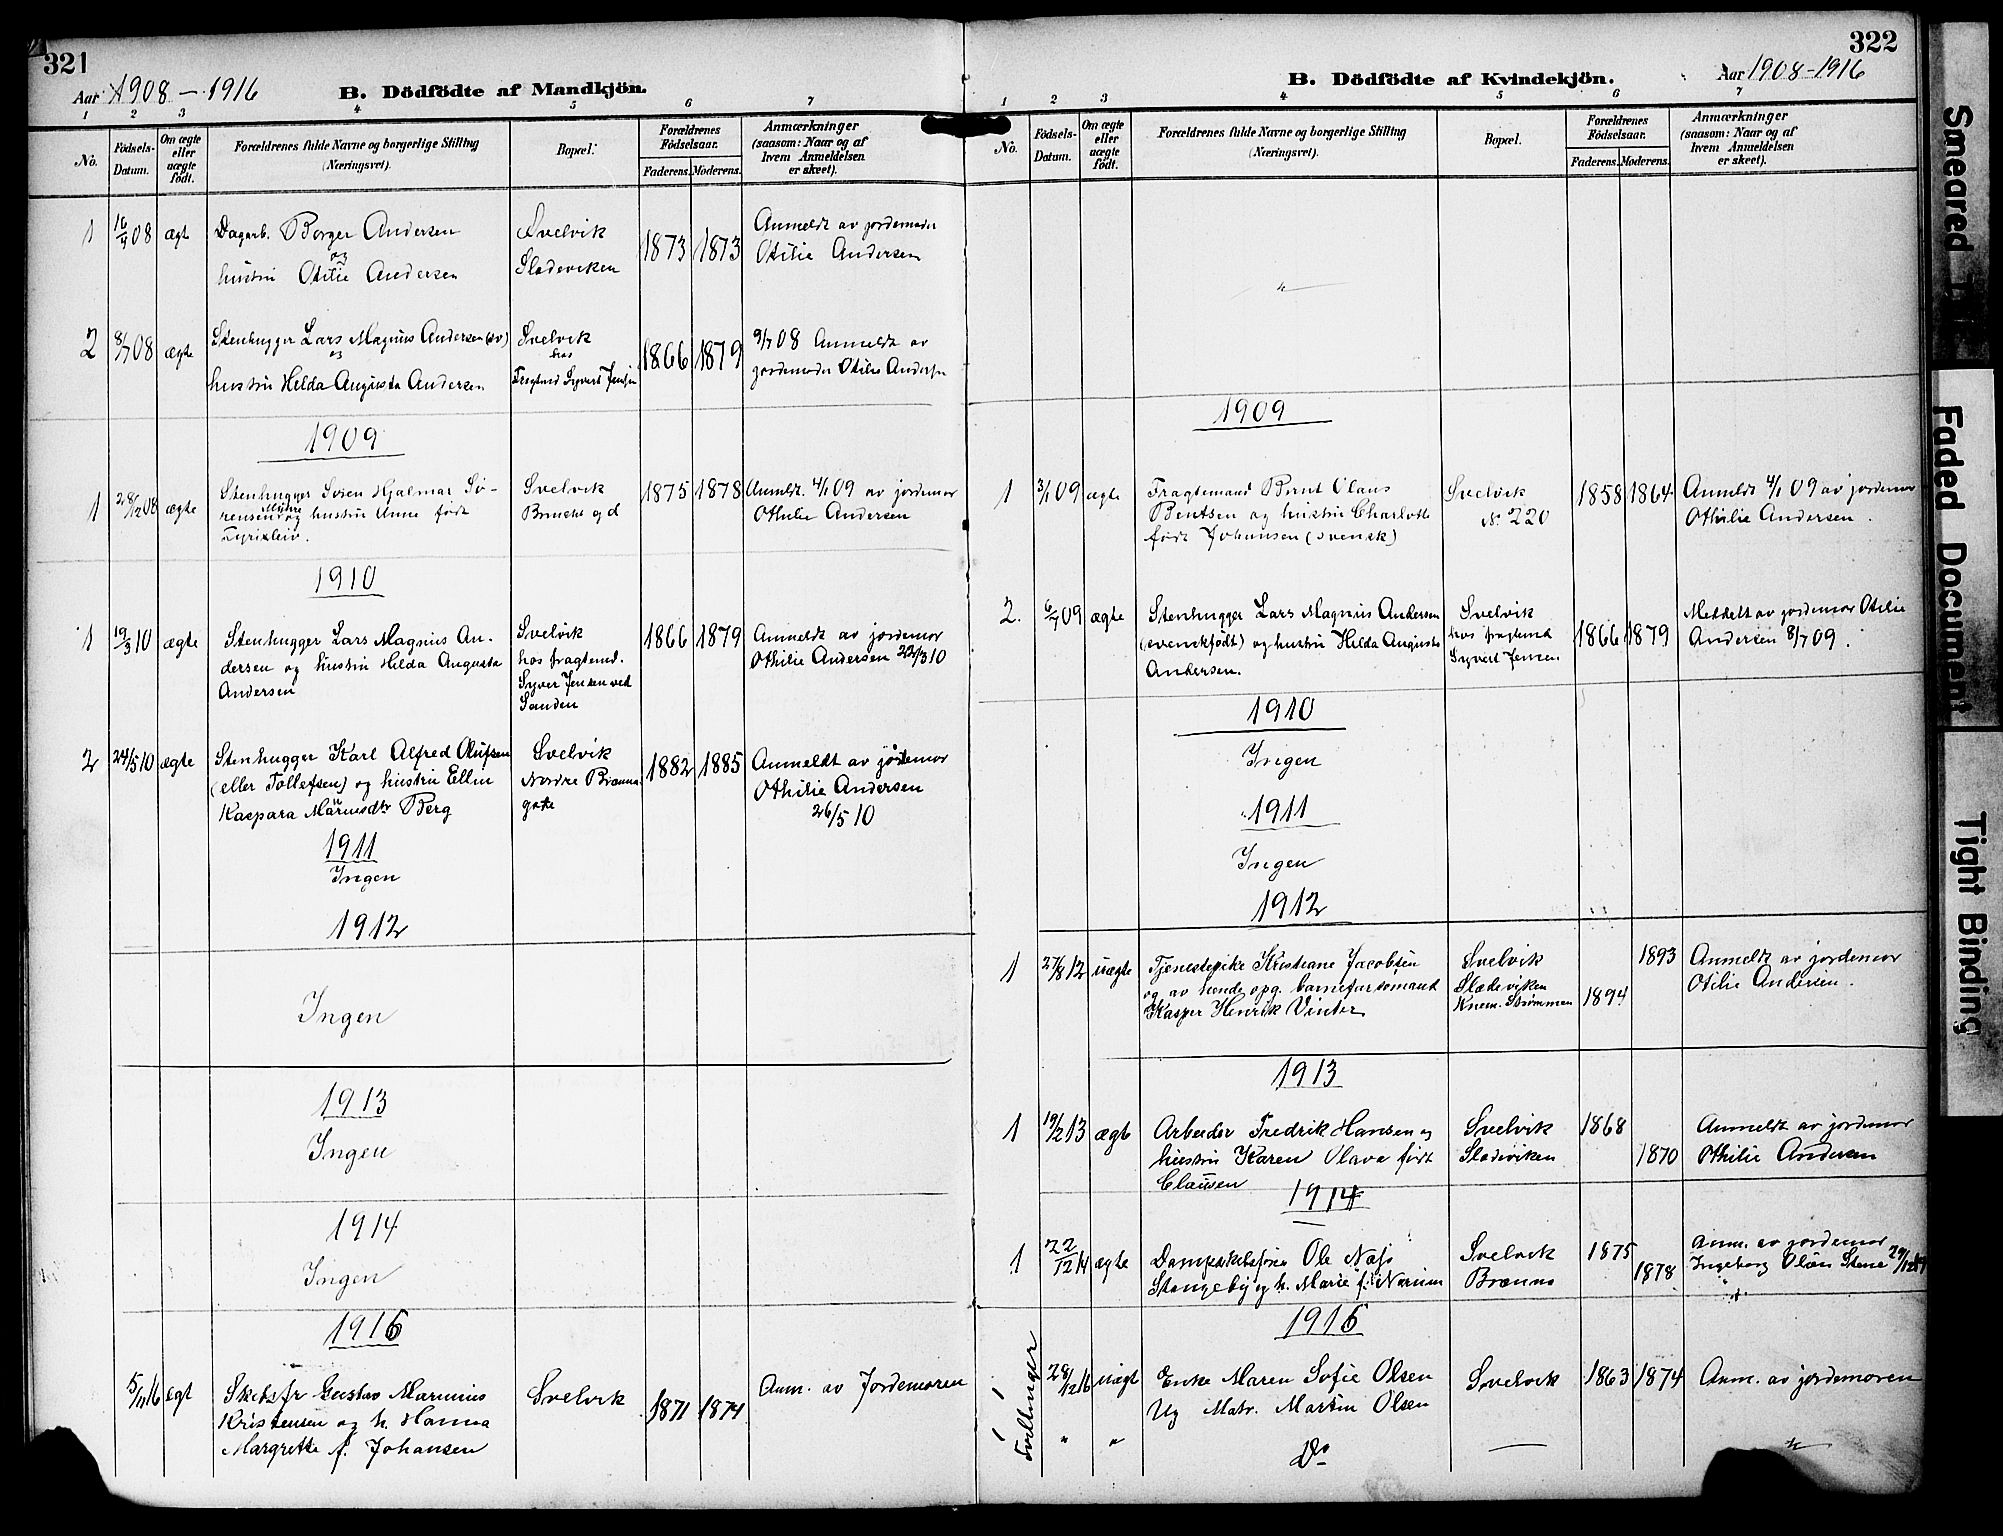 321
Aar 1908 – 1916
B. Dödfödte af Mandkjön.
1 2 3 4 5 6 7
No.
Födsels-Datum.
Om ægte eller uægte födt.
Forældrenes fulde Navne og borgerlige Stilling (Næringsvei).
Bopæl.
Forældrenes Födselsaar.
Faderens. Moderens.
Anmærkninger (saasom: Naar og af hvem Anmeldelsen er skeet).
1 16/4 08 ægt Dagarb. Borger Andersen Svelvik 1873 1873 Anmeldt av jordemoder
og
hustru Otilie Andersen Sladeviken Otilie Andersen
2 8/7 08 ægte Stenhugger Lars Magnus Andersen (sv) Svelvik 1866 1879 9/7 08 Anmeldt av
og hos
hustru Hilda Augusta Andersen Fragtmd Syvert Jensen jordemoder Otilie Andersen
1909
1 28/12 08 ægte Stenhugger Søren Hjalmar Sø- Svelvik 1875 1878 Anmldt. 4/1 09 av jordemor
rensen og hustru Anne født Othilie Andersen
1910
1 19/3 10 ægte Stenhugger Lars Magnus An- Svelvik 1866 1879 Anmeldt av jordemor
dersen og hustru Hilda Augusta hos fragtemd. Othilie Andersen 22/3 10
Andersen Syver Jensen ved
Sanden
2 24/5 10 ægte Stenhugger Karl Alfred Olufsen Svelvik 1882 1885 Anmeldt av jordemor
(eller Tollefsen) og hustru Ellen Nordre Brænna Othilie Andersen
Kaspara Marensdtr Berg gate 26/5 10
1911
Ingen
1912
Ingen
1913
Ingen
1914
Ingen
1916
5/11 16 ægt Skibsfr Gustav Marinius Svelvik 1871 1874 Anm. av Jordemoren
Kristensen og h. Hanna
Margrethe f. Johansen
322
Aar 1908-1916
B. Dödfödte af Kvindekjön.
1 2 3 4 5 6 7
No.
Födsels-Datum.
Om ægte eller uægte födt.
Forældrenes fulde Navne og borgerlige Stilling (Næringsvei).
Bopæl.
Forældrenes Födselsaar.
Faderens. Moderens.
Anmærkninger (saasom: Naar og af hvem Anmeldelsen er skeet).
1909
1 3/1 09 ægte Fragtemand Bernt Olaus Svelvik 1858 1864 Anmeldt 4/1 09 av jordemor
Bentsen og hustru Charlotte N. 220 Othilie Andersen.
født Johansen (svensk)
2. 6/7 09 ægte Stenhugger Lars Magnus Andersen Svelvik 1866 1879 Meddelt av jordemor Otilie
(svenskfødt) og hustru Hilda Augusta hos fragtmd Andersen 8/7 09.
Andersen. Syvert Jensen
1910
Ingen
1911
Ingen
1912
1 27/8 12 uægte Tjenestepike Kristiane Jacobsen Svelvik 1893 Anmeldt av jordemor
og av hende opg. barnefar sømand Sladeviken 1894 Otilie Andersen.
Kasper Henrik Vinter Knem. Strømmen
1913
1 19/2 13 ægte Arbeider Fredrik Hansen og Svelvik 1868 Anmeldt av jordemor
hustru Karen Olava født Sladeviken 1870 Othilie Andersen
Clausen
1914
1 22/12 14 ægte Dampskibsfører Ole Næss Svelvik 1875 Anm. av jordemor
Stangeby og h. Marie f. Narum Brænna 1878 Ingeborg Olsen Stene 29/12 14
1916
Tvillinger
1 28/12 16 uægt Enke Maren Sofie Olsen Svelvik 1863 1874 Anm. av jordemoren
Ug Matr. Martin Olsen
1 " " Do —
Smeared
Faded Document
Tight Binding